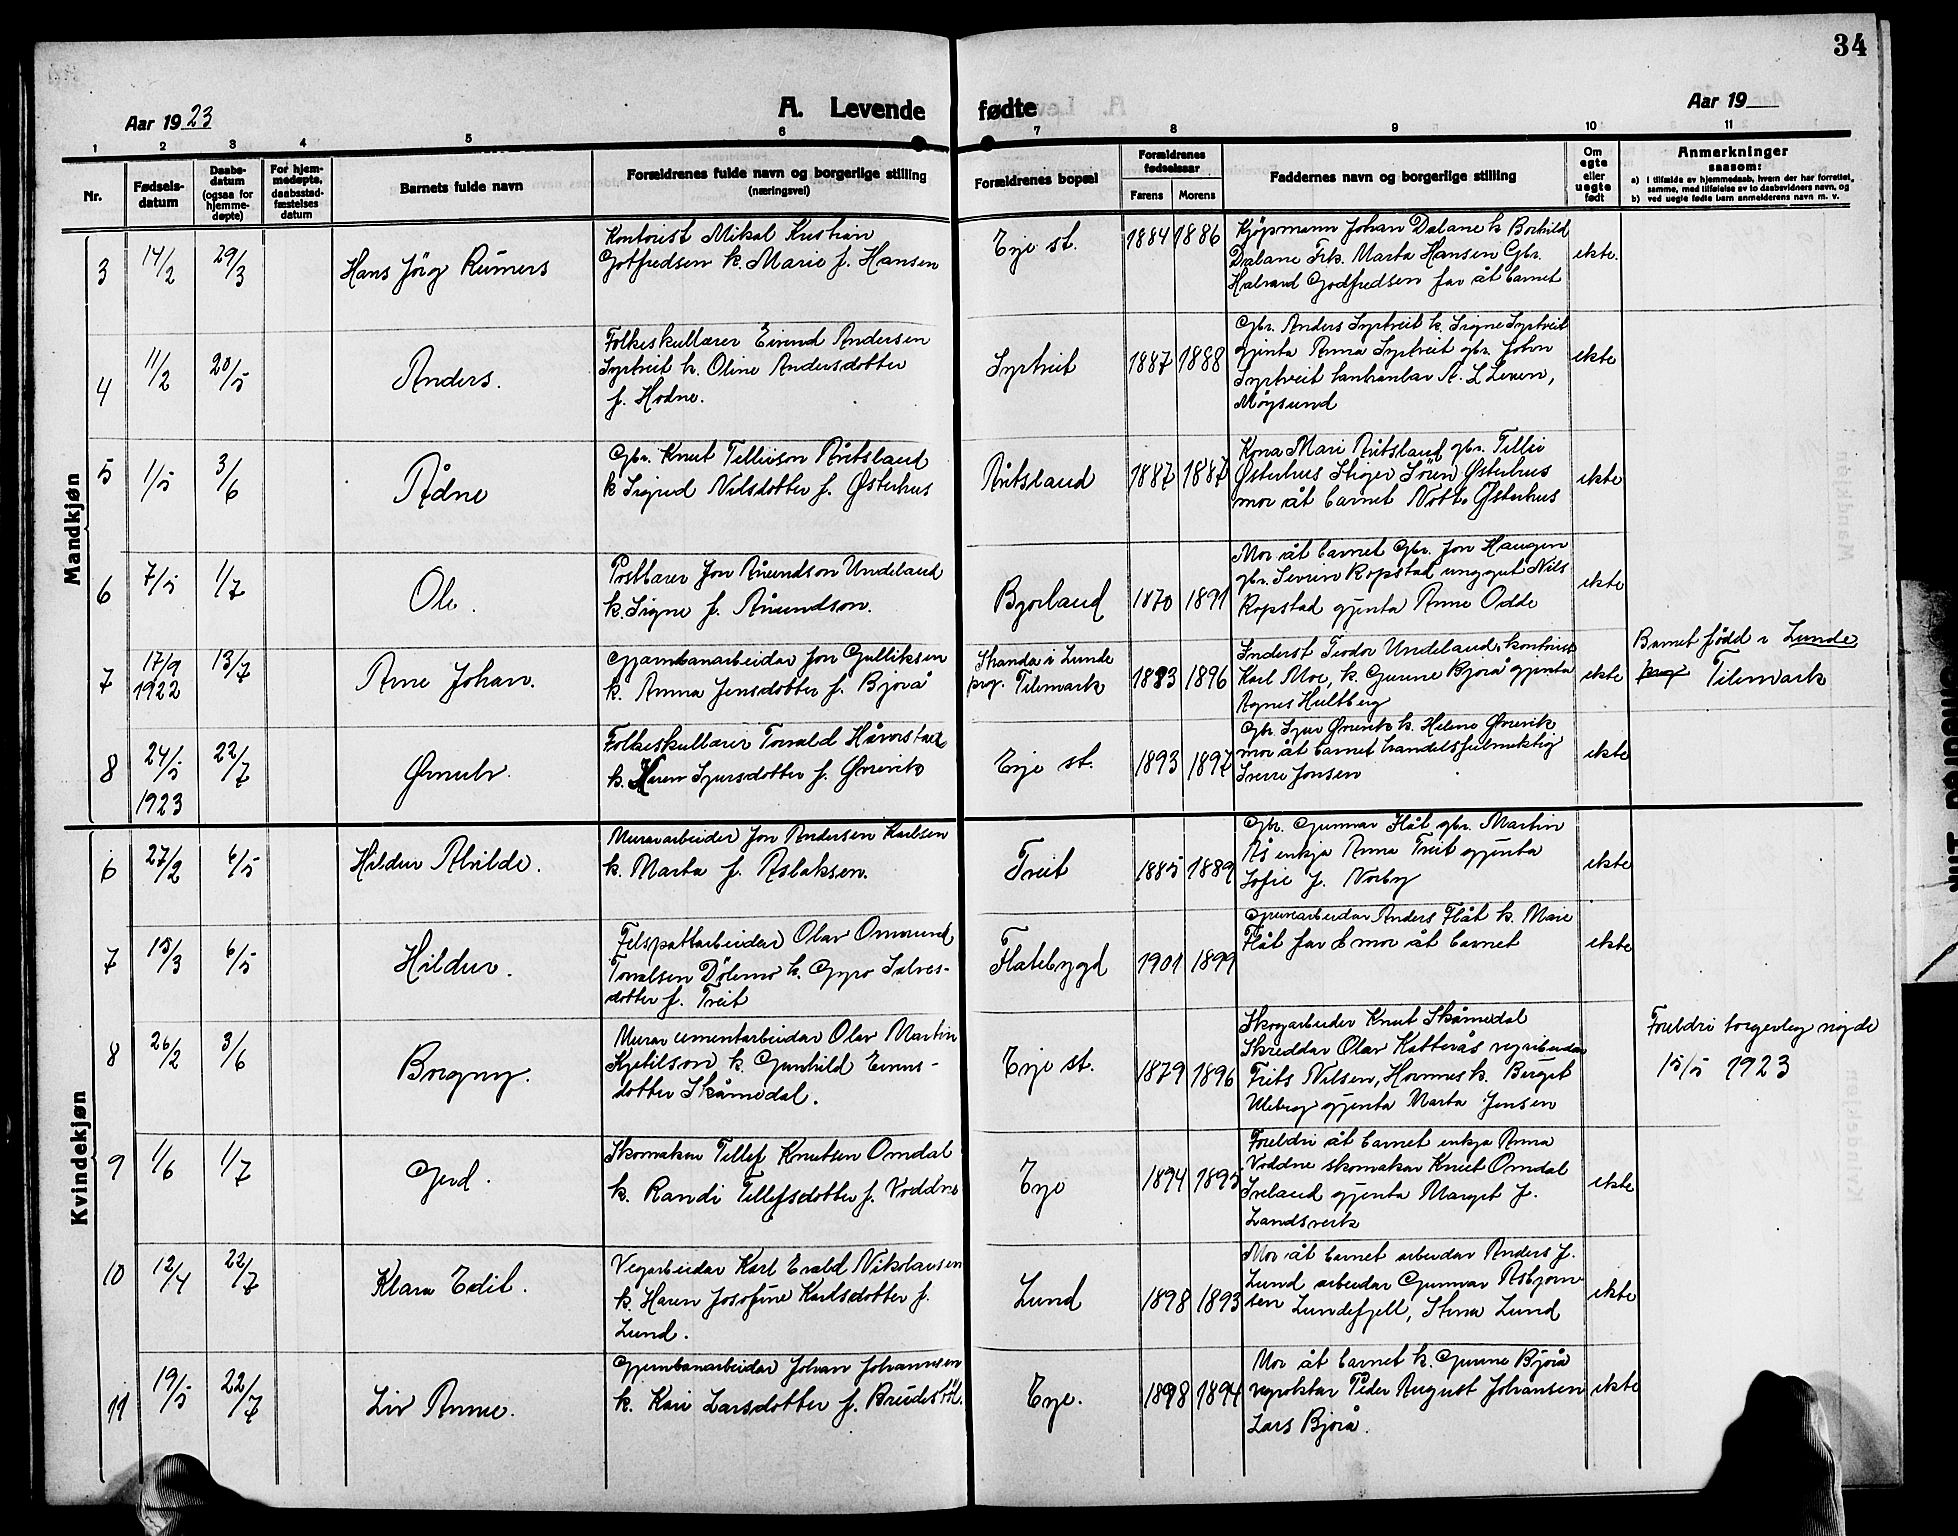 34
Aar 1923
A. Levende fødte
Aar 19
1 2 3 4 5 6 7 8 9 10 11
Nr.
Fødsels-
datum
Daabs-
datum
(ogsaa for
hjemme-
døpte)
For hjem-
medøpte,
daabsstad-
fæstelses
datum
Barnets fulde navn
Forældrenes fulde navn og borgerlige stilling
(næringsvei)
Forældrenes bopæl
Forældrenes
fødselsaar
Farens Morens
Faddernes navn og borgerlige stilling
Om
egte
eller
uegte
født
Anmerkninger
saasom:
a) i tilfælde av hjemmedaab, hvem der har forrettet
samme, med tilføielse av to daabsvidners navn, og
b) ved uegte fødte barn anmelderens navn m. v.
Mandkjøn
3 14/2 29/3
Hans Jörg Rumers
Kontorist Mikal Kristian
Gotfredsen k. Marie f. Hansen
Evje st.
1884 1886
Kjøpmann Johan Dalane k. Borhild
Dalane Frk. Marta Hansen Gbr.
Halvard Godfredsen far åt barnet
ekte.
4 11/2 20/5
Anders.
Folkeskullærer Eivind Andersen
Syrtveit k. Oline Andersdotter
f. Hodne.
Syrtveit
1887 1888
Gbr. Anders Syrtveit k. Signe Syrtveit
gjenta Anna Syrtveit gbr. John
Syrtveit A. L
ekte
5 1/5 3/6
Ådne
Gbr. Knut Tellevson Åvitsland
k Sigrid Nilsdotter f. Østerhus
Åvitsland
1887 1887
Kona Mari Åvitsland gbr. Tellev
Østerhus Stiger Sören Østerhus
mor åt barnet Østerhus
ekte
6 7/5 1/7
Ole.
Jon Åmundson Undeland
k. Signe f. Åmundson.
Bjorland
1870 1891
Mor åt barnet Gbr. Jon Haugen
gbr. Severin Ropstad unggut Nils
Ropstad gjenta Anne Odde
ekte
7 17/9 13/7
1922
Arne Johan.
Gjarnbanarbeidar Jon Gulliksen
k. Anna Jensdotter f. Bjorå
Stranda i Lunde
prg. Tilemark
1883 1896
Teodor Undeland, kontorist
Karl Moe, k. Gunne Bjorå gjenta
Agnes Hultberg
ekte
Barnet född i Lunde
prg Tilemark
8 24/5 22/7
1923
Ørnulv.
Folkeskullærer Torvald Håverstad
k. Karen Syversdotter f. Øvrevik
Evje st.
1893 1897
Gbr. Syver k. Helene
mor åt barnet handelsfulmektig
Sverre Jonsen
ekte
Kvindekjøn
6 27/2 6/5
Hildur Alvilde.
Murararbeider Jon Andersen Karlsen
k. Marta f. Aslaksen.
Treit
1885 1889
Gbr. Gunnar Flåt gbr. Martin
Ås enkja Anna Treit gjenta
Sofie J. Norby
ekte
7 15/3 6/5
Hildur.
Felspattarbeidar Olav Omund
Torvalsen Dölemo k. Gyro Salves-
dotter f. Treit
Flatebygd
1901 1899
Gruvearbeidar Anders Flåt k. Mare
Flåt far & mor åt barnet
ekte
8 26/2 3/6
Borgny.
Murar cementarbeidar Olav Martin
Kjetilson k. Gunhild
dotter Skåmedal.
Evje st.
1879 1896
Skogarbeider Knut Skåmedal
Skreddar Olav Katterås vegarbeidar
Frits Nilsen, Hornnes k. Birgit
Uleberg gjenta Marta Jensen
Foreldri borgerleg vigde
15/5 1923
9 1/6 1/7
Gerd.
Skomaker Tellef Knutsen Omdal
k. Randi Tellefsdotter f. Voddne
Evje
1894 1895
Foreldri åt barnet enkja Anna
Voddne skomakar Knut Omdal
Iveland gjenta Margit J.
Landsverk
ekte
10 12/4 22/7
Klara Edit.
Vegarbeidar Karl Evald Nikolaisen
k. Karen Josefine Karlsdotter f.
Lund.
Lund
1898 1893
Mor åt barnet arbeidar Anders J.
Lund arbeidar Gunnar Asbjorn
sen Lundefjell, Stena Lund
ekte
11 19/5 22/7
Liv Anne.
Gjernbanarbeidar Johan Johannesen
k. Kari Larsdotter f. Breidestöl.
Evje.
1898 1894
Mor åt barnet k. Gunne Bjorå
vegvoktar Peder August Johansen
Lars Bjorå.
ekte